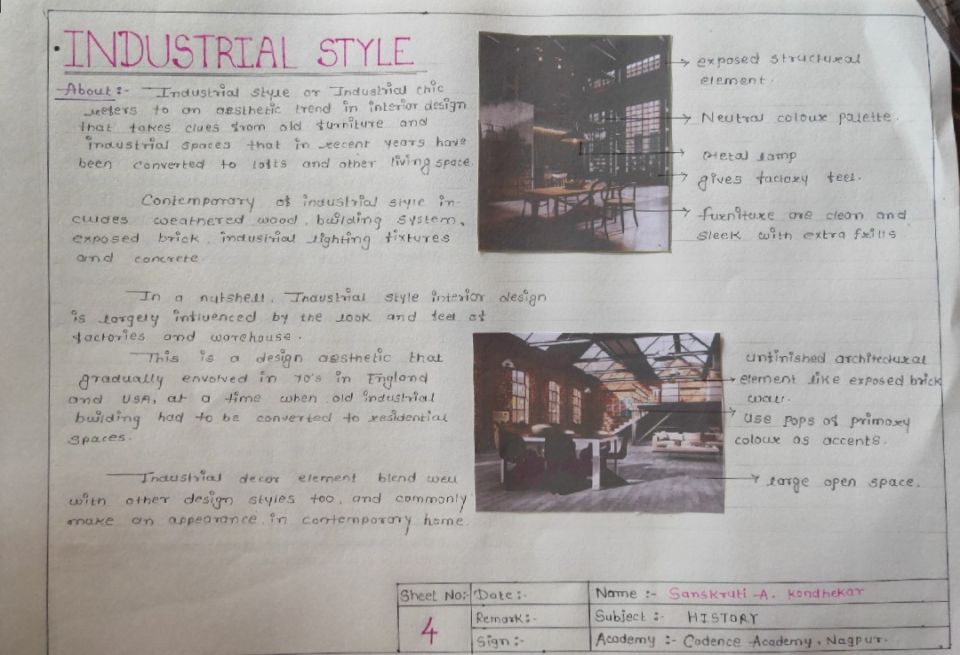 INDUSTRIAL STYLE
About :- Industrial style or Industrial chic
refers to an aesthetic trend in interior design
that takes clues from old furniture and
industrial spaces that in recent years have
been converted to lofts and other living space.
Contemporary of industrial style in-
cludes weathered wood, building system,
exposed brick, industrial lighting fixtures
and concrete.
In a nutshell, Industrial style interior design
is largely influenced by the look and feel of
factories and warehouse.
This is a design aesthetic that
gradually envolved in 70's in England
and USA, at a time when old industrial
building had to be converted to residential
spaces.
Industrial decor element blend well
with other design styles too, and commonly
make an appearance in contemporary home.
exposed structural
element.
Neutral colour palette.
Metal lamp
gives factory feel.
furniture are clean and
sleek with extra frills
unfinished architectural
element like exposed brick
wall.
use pops of primary
colour as accents.
large open space.
Sheet No:- 4
Date :-
Remark :-
Sign :-
Name :- Sanskruti A. Kondhekar
Subject :- HISTORY
Academy :- Cadence Academy, Nagpur.